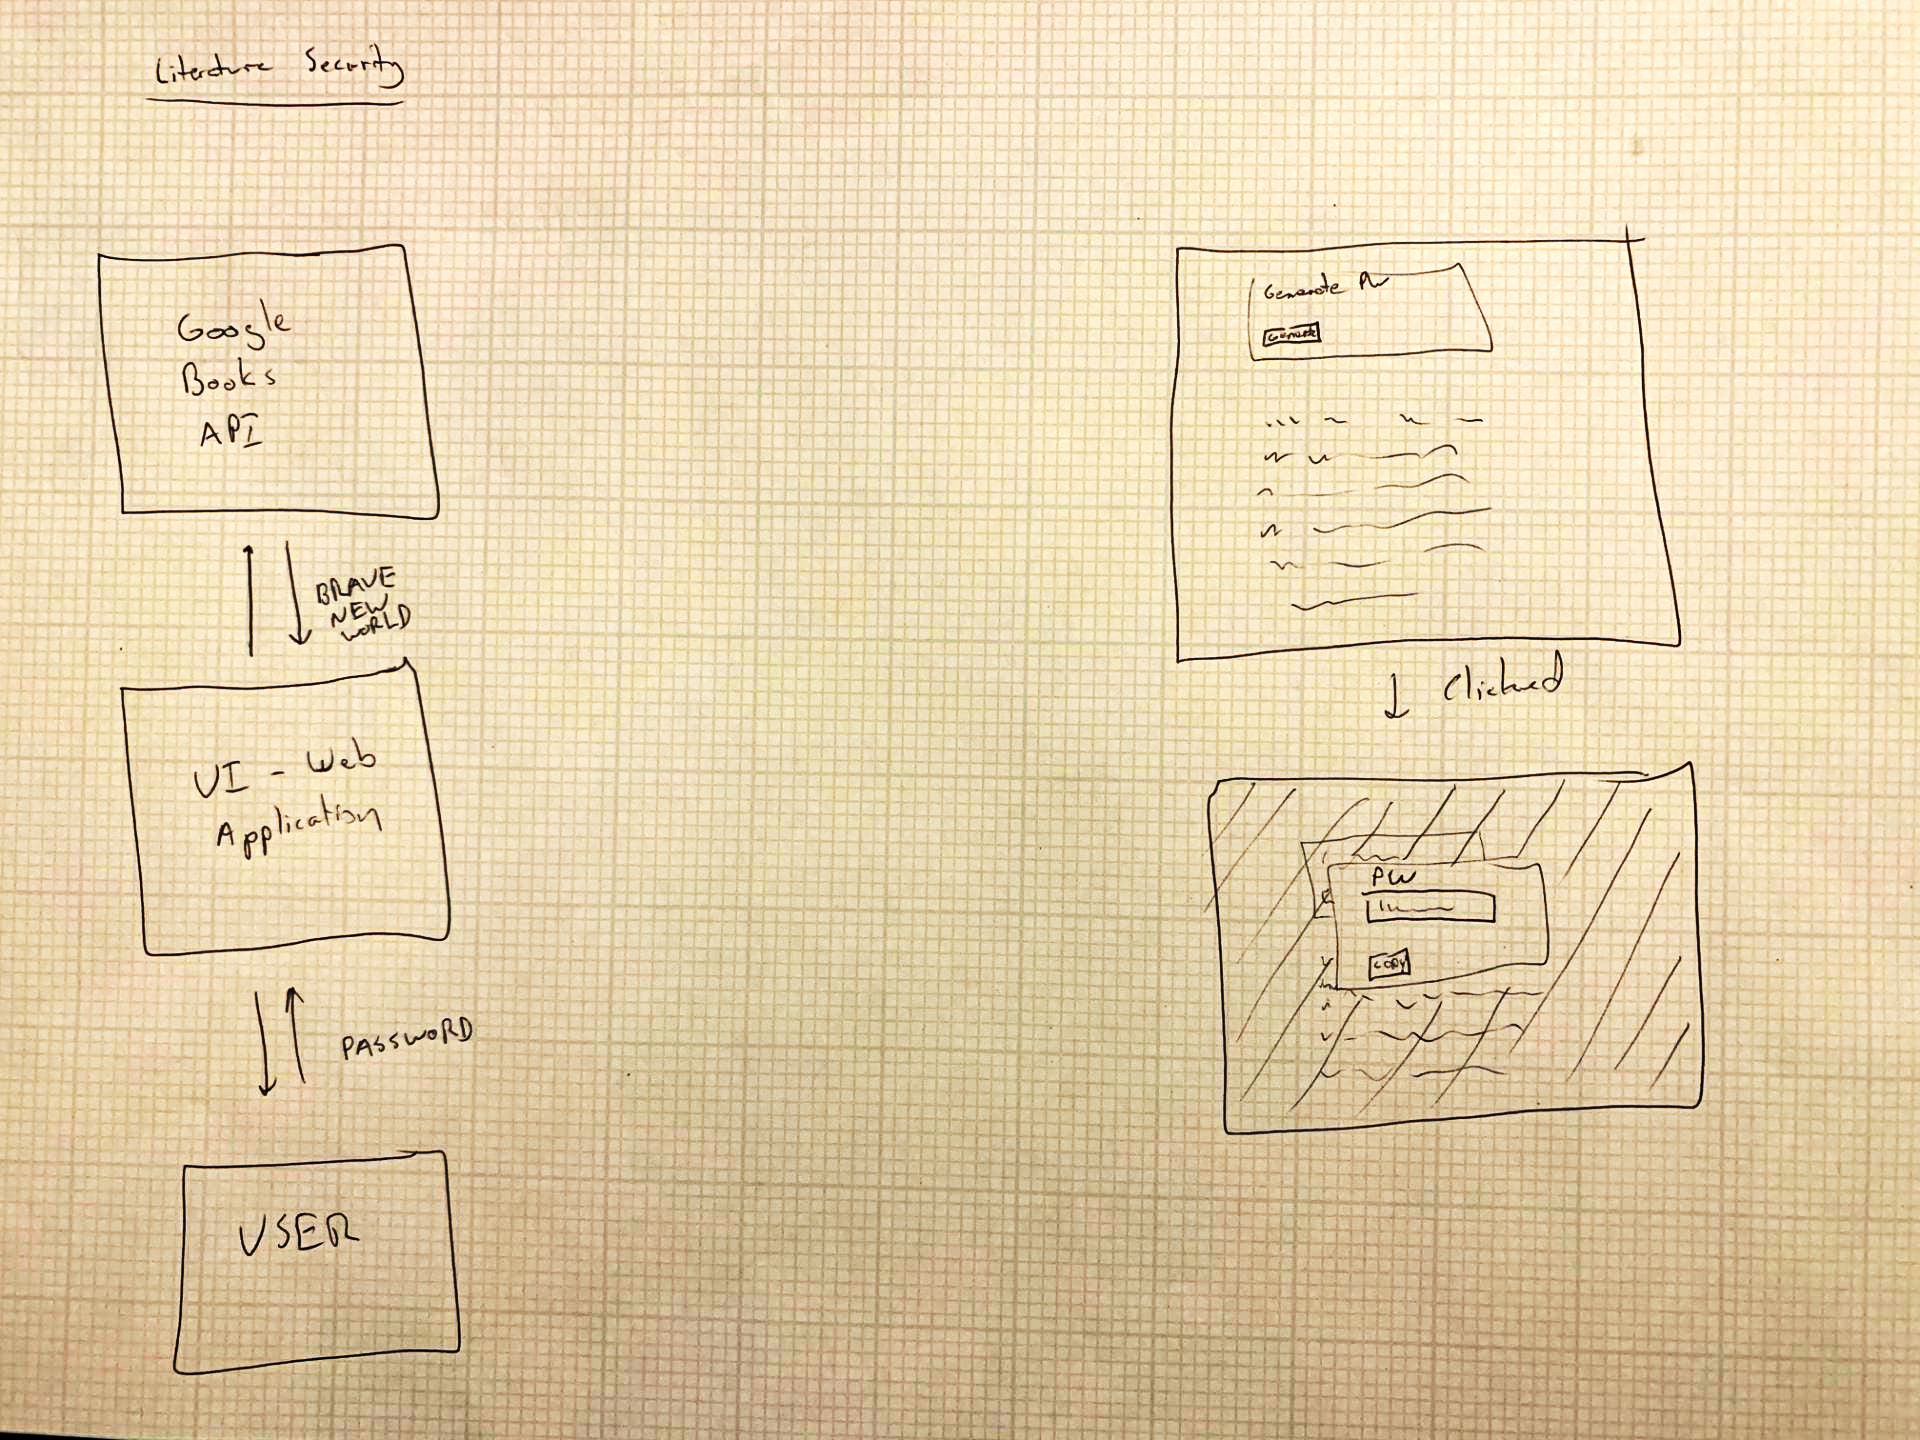 Literature Security
Google
Books
API
BRAVE
NEW
WORLD
UI - Web
Application
PASSWORD
USER
Generate PW
Generate
Clicked
PW
COPY